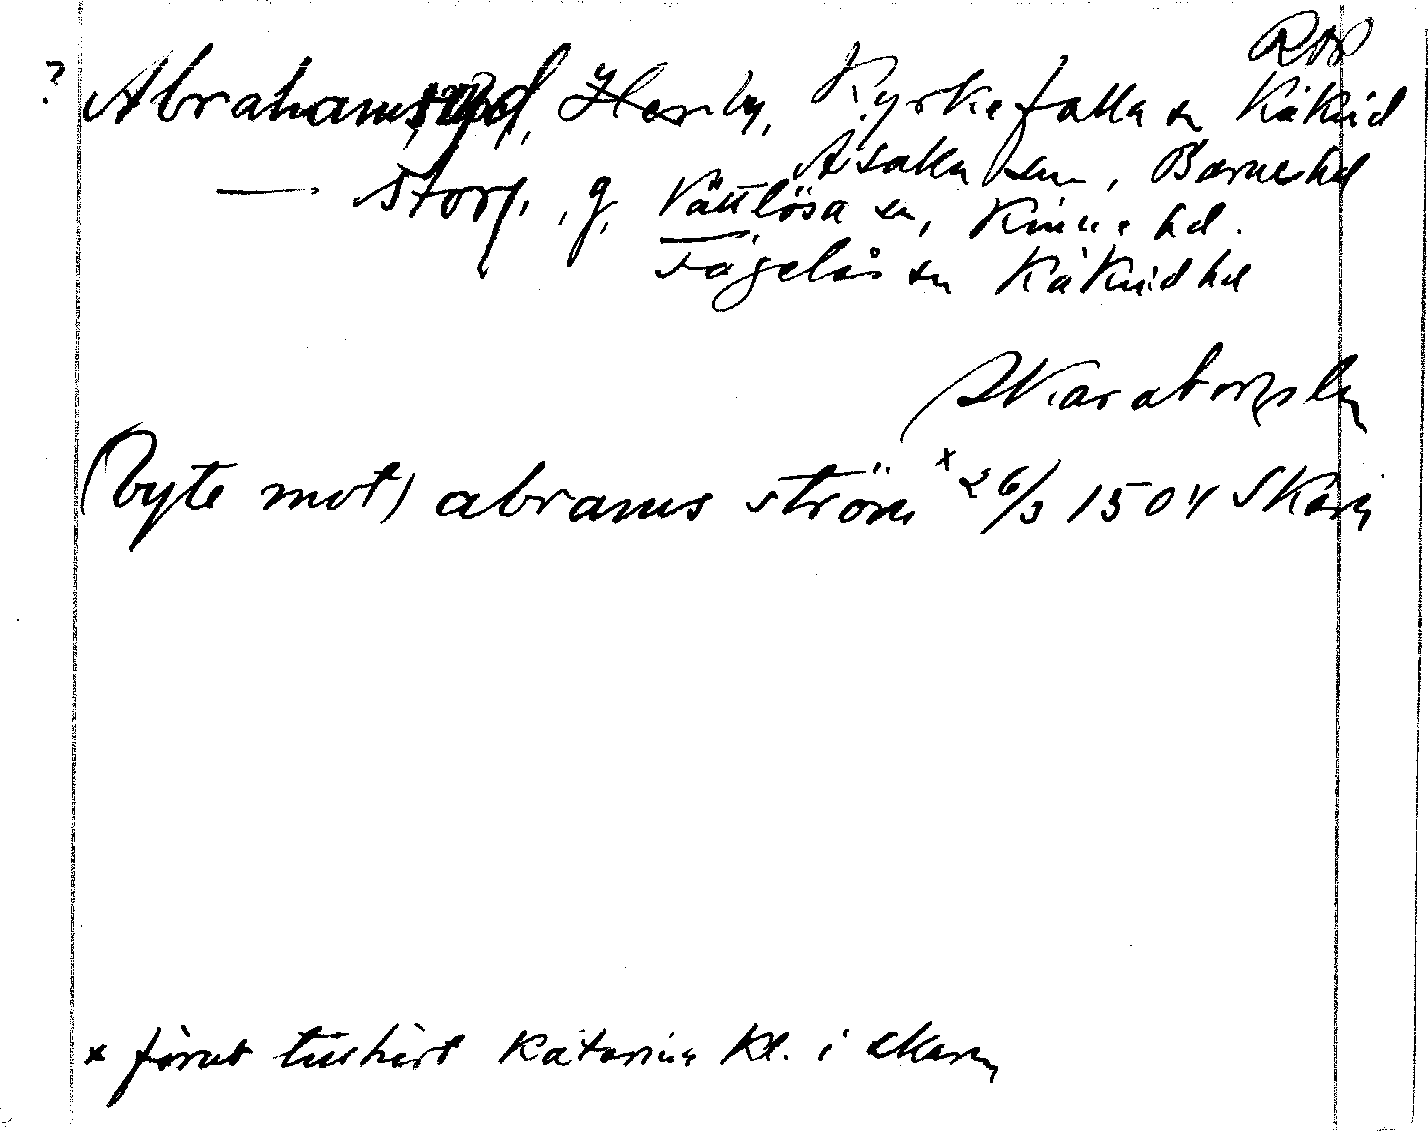 ? Abrahams, Henby, Kyrkefalla sn Kåkind
Asaka sn, Barne hd
— Storp, g, Vättlösa sn, Kinne hd.
Fågelås sn Kåkind hd
Skaratorpsbr
(byte mot) abrams ström x 26/3 1504 Skara
x förut tillhört Katarina kl. i Skara